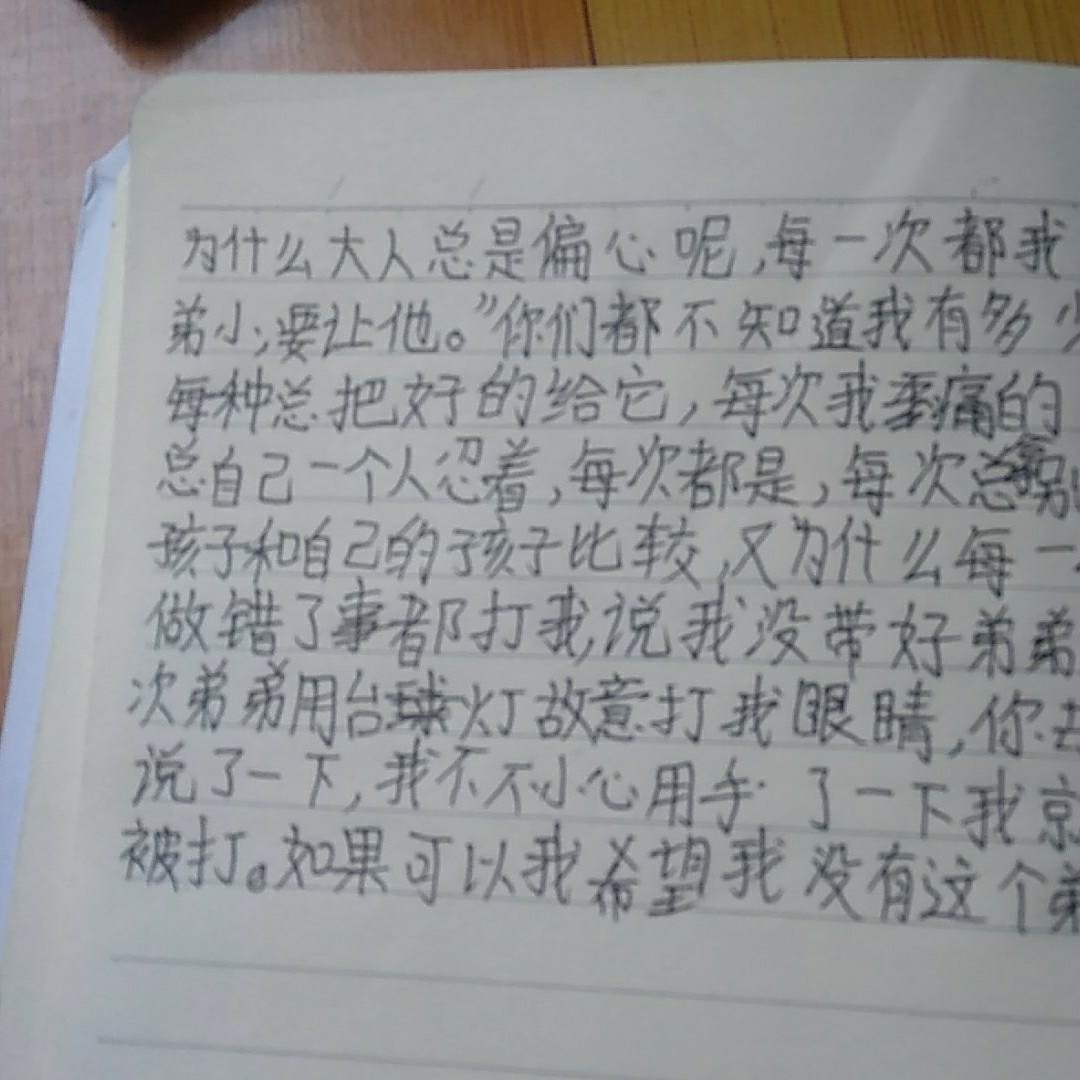 为什么大人总是偏心呢,每一次都我
弟小,要让他。”你们都不知道我有多少
每种总把好的给它,每次我痛的
总自己一个人忍着,每次都是,每次总拿别
孩子和自己的孩子比较,又为什么每一
做错了事都打我,说我没带好弟弟
次弟弟用台灯故意打我眼睛,你去
说了一下,我不不小心用手 了一下我
被打。如果可以我希望我没有这个弟